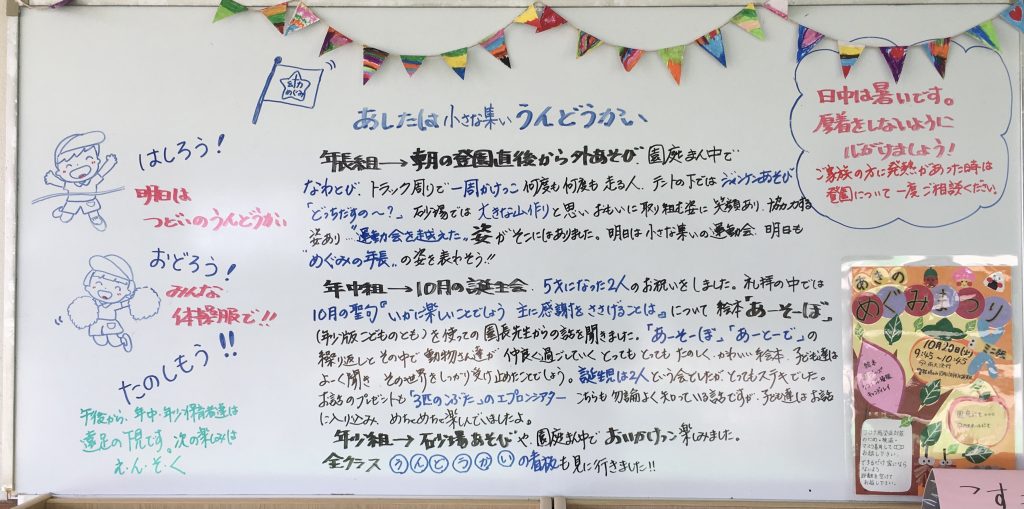 幼
めぐみ
あしたは 小さな集い うんどうかい
はしろう!
明日は
つどいのうんどうかい
おどろう!
みんな
体操服で!!
たのしもう!!
午後から、年中・年少保育者達は
遠足の下見です。次の楽しみは
え・ん・そ・く
年長組→朝の登園直後から外あそび、園庭まん中で
なわとび、トラック周りで一周かけっこ 何度も何度も走る人、テントの下ではジャンケンあそび
「どっちだすの〜?」 砂場では大きな山作りと思いおもいに取り組む姿に笑顔あり、協力する
姿あり…"運動会を越えた"姿がそこにはありました。明日は小さな集いの運動会、明日も
"めぐみの年長"の姿を表わそう!!
年中組→10月の誕生会、5才になった2人のお祝いをしました。礼拝の中では
10月の聖句『いかに楽しいことでしょう 主に感謝をささげることは』について 絵本『あーそーぼ』
(年少版こどものとも)を使っての園長先生からの話を聞きました。「あーそーぼ」「あーとーで」の
繰り返しとその中で動物さん達が仲良く過ごしていく とっても とっても たのしく、かわいい絵本、子ども達は
よーく聞き その世界をしっかり受け止めたことでしょう。誕生児は2人という会としたが、とってもステキでした。
お話のプレゼントも「3匹のこぶた」のエプロンシアター こちらも勿論よく知っている話ですが、子ども達はお話
に入り込み めちゃめちゃ楽しんでいましたよ。
年少組→砂場あそびや、園庭まん中で おいかけっこ楽しみました。
全クラス うんどうかいの看板も見に行きました!!
日中は暑いです。
厚着をしないように
心がけましょう!
ご家族の方に発熱があった時は
登園について一度ご相談ください。
あきの
めぐみまつり
10月22日(土)
9:45〜10:45
つす